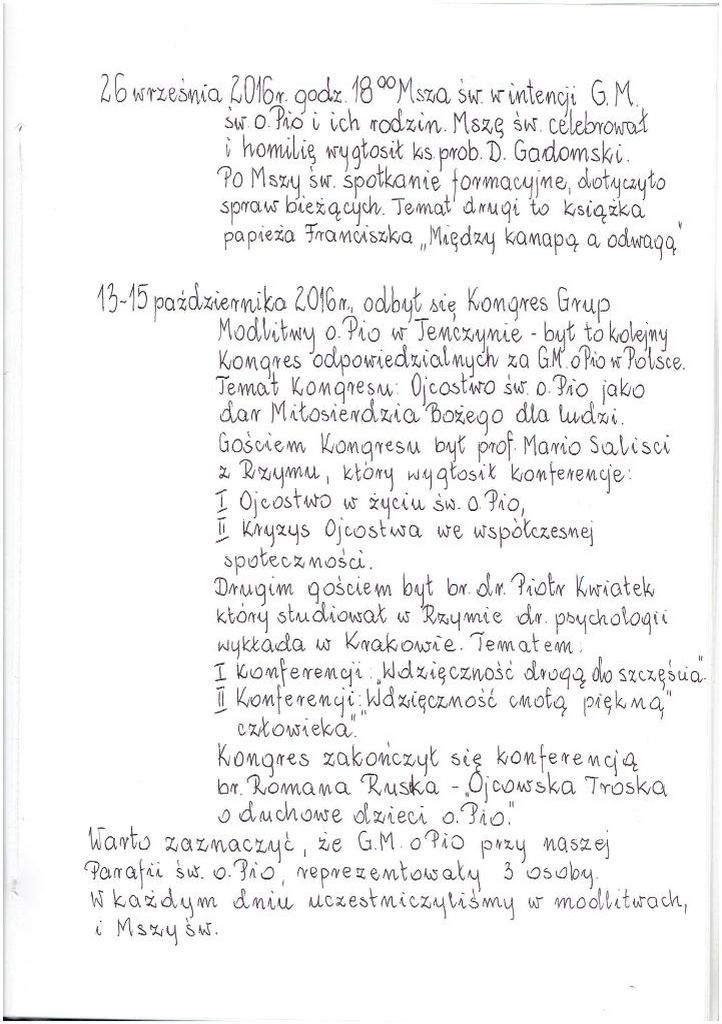 26 września 2016r. godz. 18⁰⁰ Msza św. w intencji G.M.
św. o. Pio i ich rodzin. Mszę św. celebrował
i homilię wygłosił ks. prob. D. Gadomski.
Po Mszy św. spotkanie formacyjne, dotyczyło
spraw bieżących. Temat drugi to książka
papieża Franciszka „Między kanapą a odwagą"
13-15 października 2016r., odbył się Kongres Grup
Modlitwy o. Pio w Tenczynie - był to kolejny
Kongres odpowiedzialnych za G.M. o Pio w Polsce.
Temat Kongresu: Ojcostwo św. o. Pio jako
dar Miłosierdzia Bożego dla ludzi.
Gościem Kongresu był prof. Mario Salisci
z Rzymu, który wygłosił konferencje:
I Ojcostwo w życiu św. o. Pio,
II Kryzys Ojcostwa we współczesnej
społeczności.
Drugim gościem był br. dr. Piotr Kwiatek
który studiował w Rzymie dr. psychologii
wykłada w Krakowie. Tematem:
I konferencji: „Wdzięczność drogą do szczęścia"
II Konferencji: „Wdzięczność cnotą piękną"
człowieka".
Kongres zakończył się konferencją
br. Romana Ruska - „Ojcowska Troska
o duchowe dzieci o. Pio."
Warto zaznaczyć, że G.M. o Pio przy naszej
Parafii św. o. Pio, reprezentowały 3 osoby.
W każdym dniu uczestniczyliśmy w modlitwach,
i Mszy św.